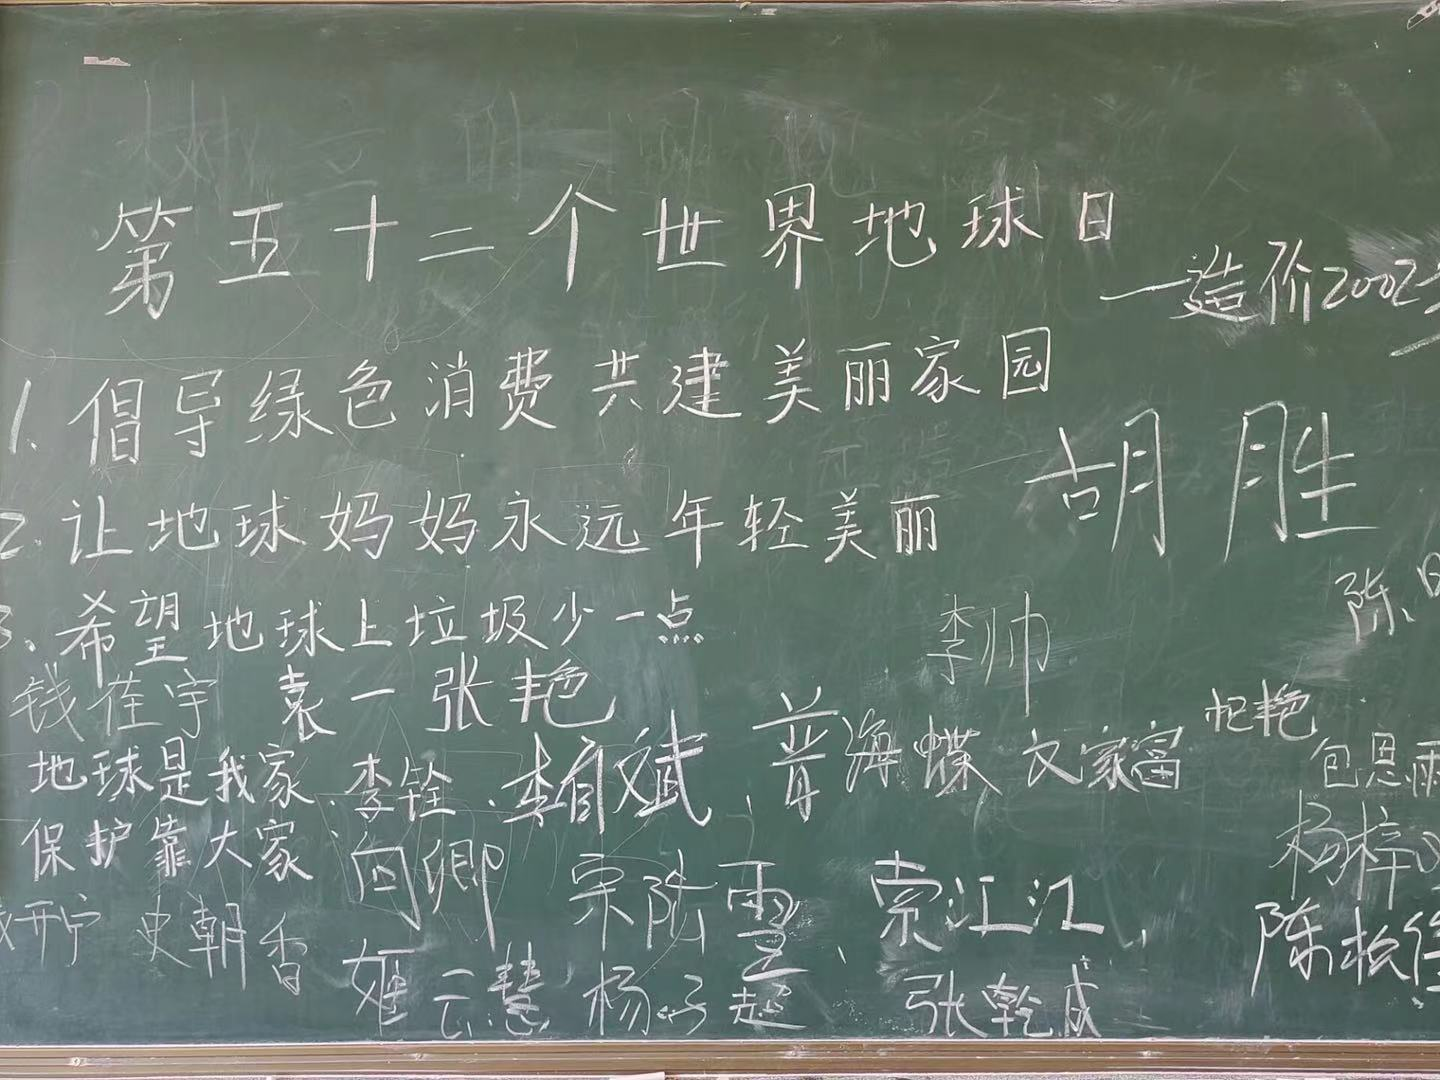 第五十二个世界地球日
—造价2002
1. 倡导绿色消费共建美丽家园
胡胜
2. 让地球妈妈永远年轻美丽
3. 希望地球上垃圾少一点
李帅
陈
钱荏宇 袁一 张艳
普海蝶 衣家富 杞艳
地球是我家 李铨
包恩雨
保护靠大家
杨梓
闵卿 宗陆雪 索江江
开宁 史朝香
陈
姬云慧 杨子超 张乾成